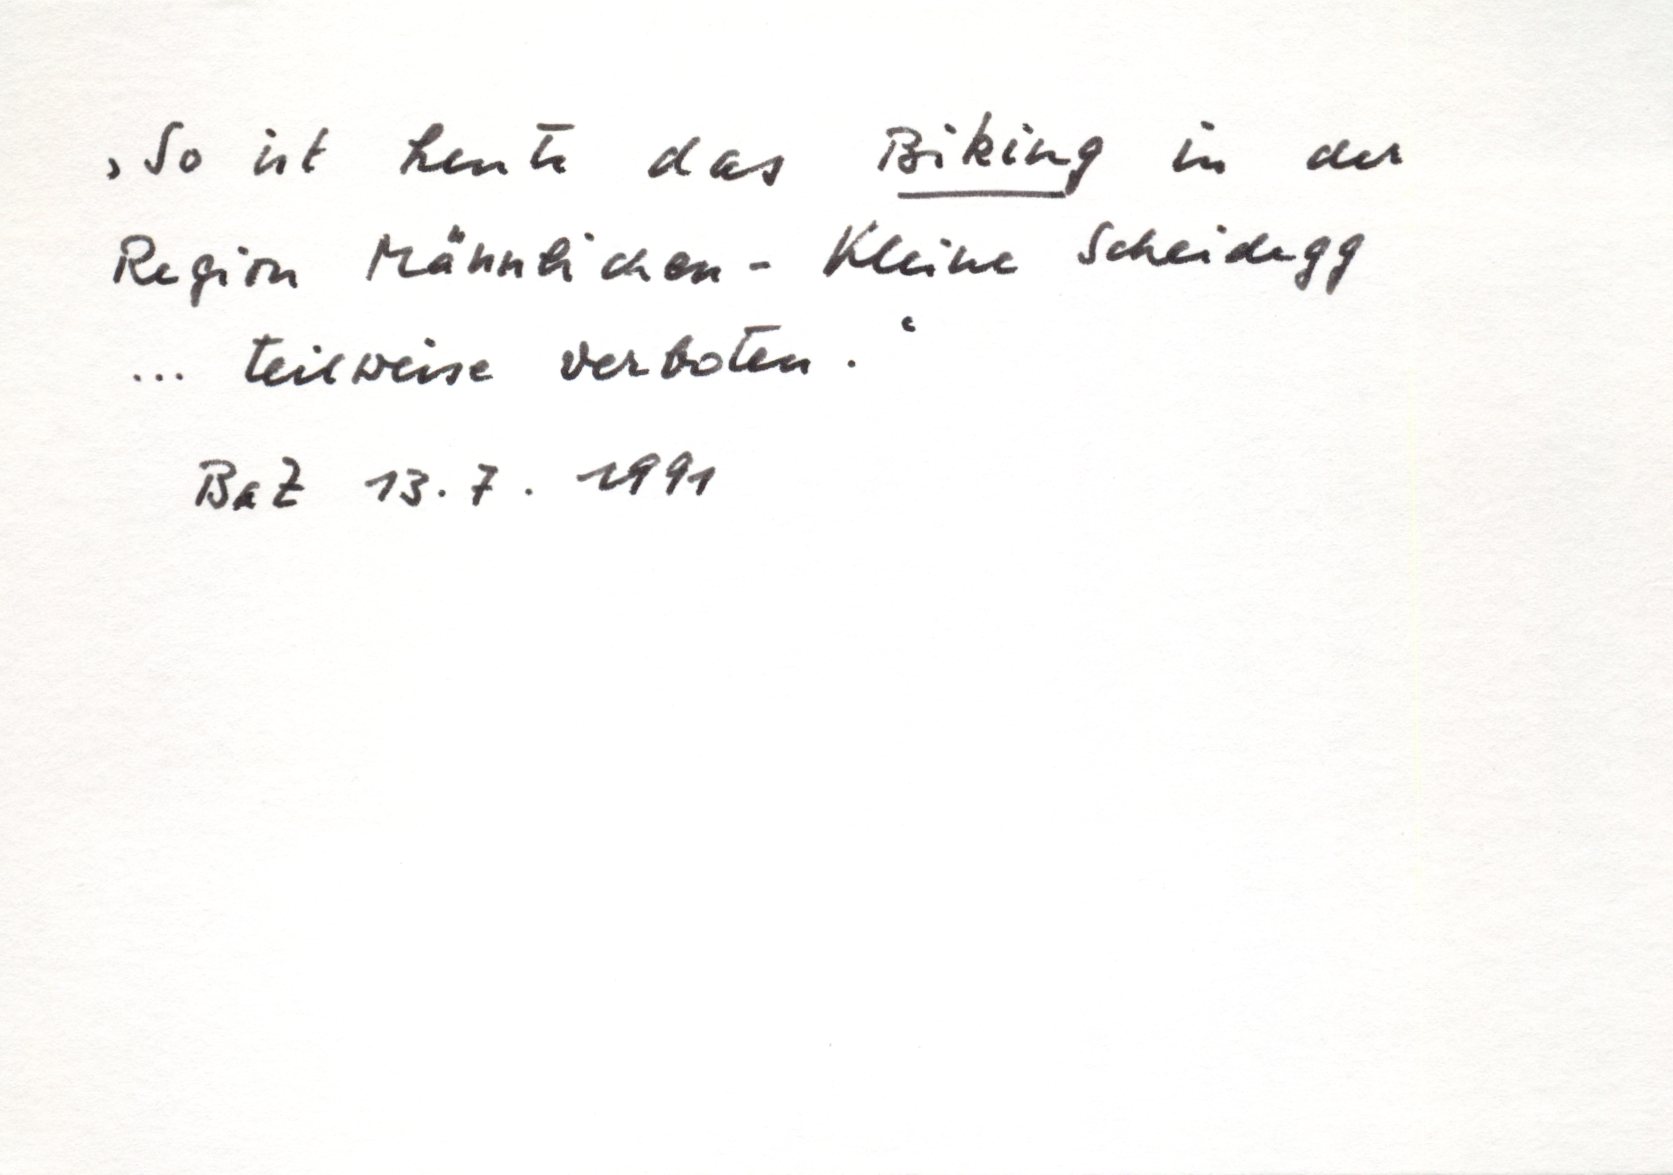 ‚So ist heute das Biking in der
Region Männlichen - Kleine Scheidegg
... teilweise verboten.‘
BaZ 13.7.1991